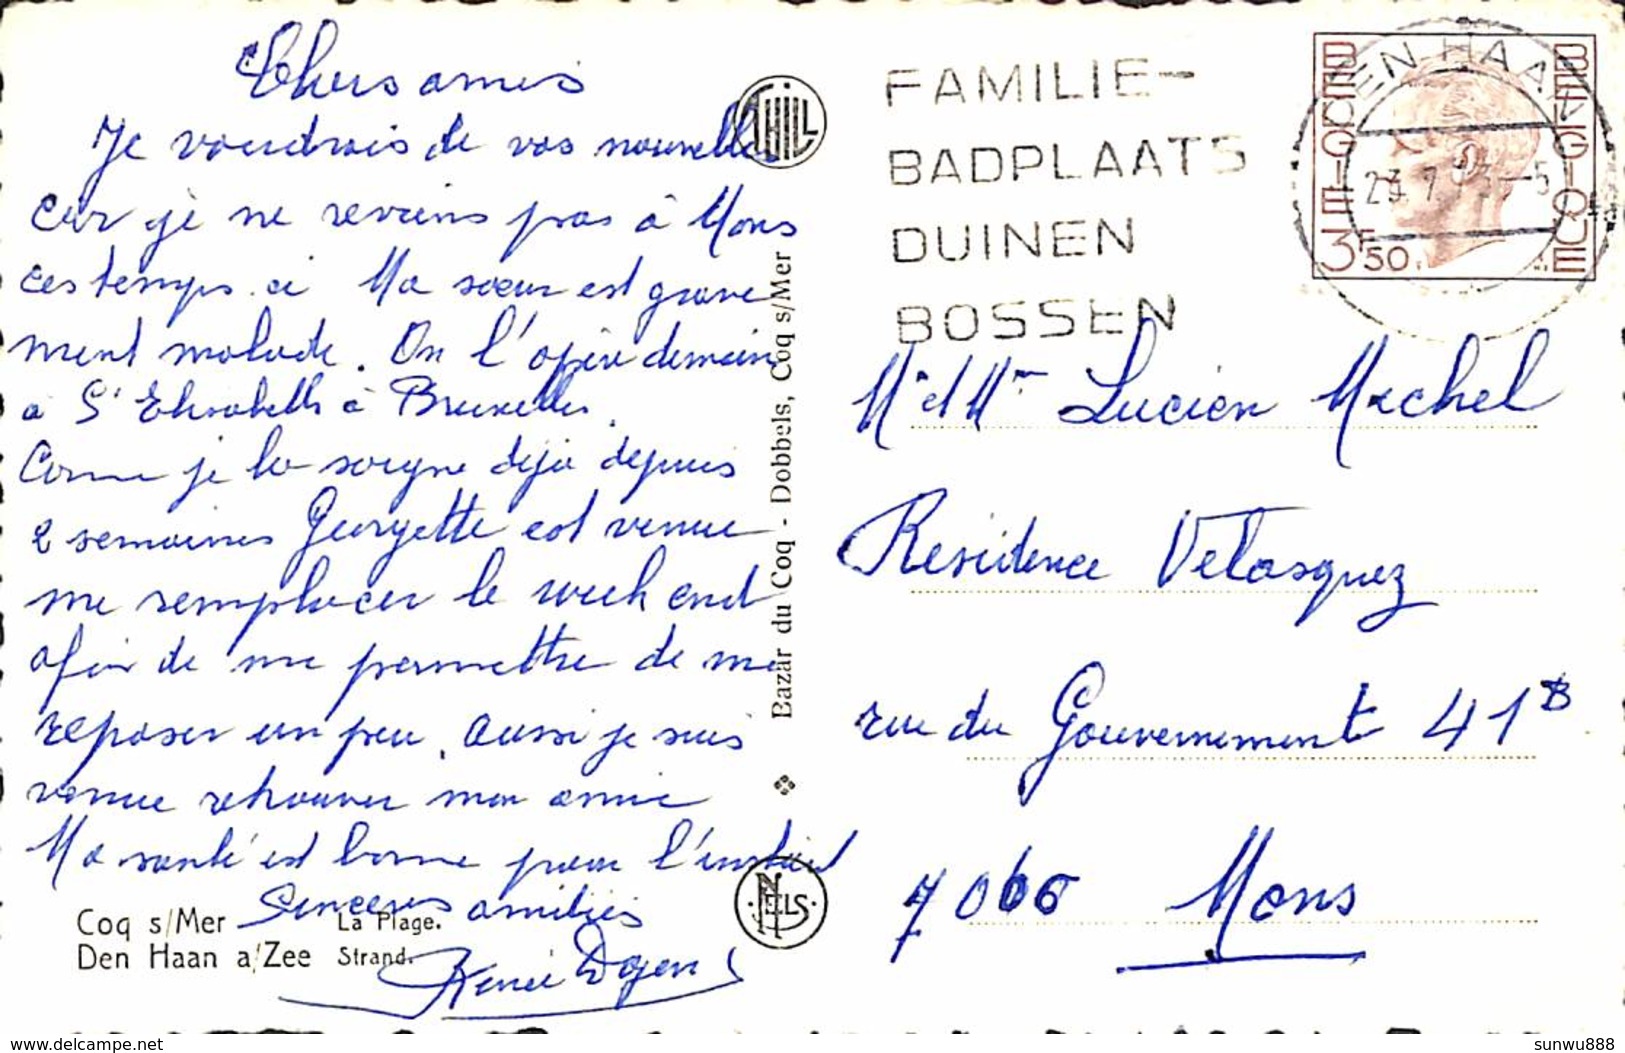 Chers amis
Je voudrais de vos nouvelles
car je ne reviens pas à Mons
ces temps ci Ma soeur est grave
ment malade. On l'opère demain
à St Elisabeth à Bruxelles.
Comme je la soigne déjà depuis
2 semaines Georgette est venue
me remplacer le week end
afin de me permettre de me
reposer un peu, aussi je suis
venue retrouver mon amie
Ma santé est bonne pour l'instant
Sincères amitiés
Renée Doyen
Coq s/Mer La Plage.
Den Haan a/Zee Strand.
THILL
Bazar du Coq - Dobbels, Coq s/Mer
NELS
FAMILIE-
BADPLAATS
DUINEN
BOSSEN
DEN HAAN
BELGIE BELGIQUE
3F50
Mr et Mme Lucien Michel
Résidence Velasquez
rue du Gouvernement 41B
7000 Mons
sunwu888